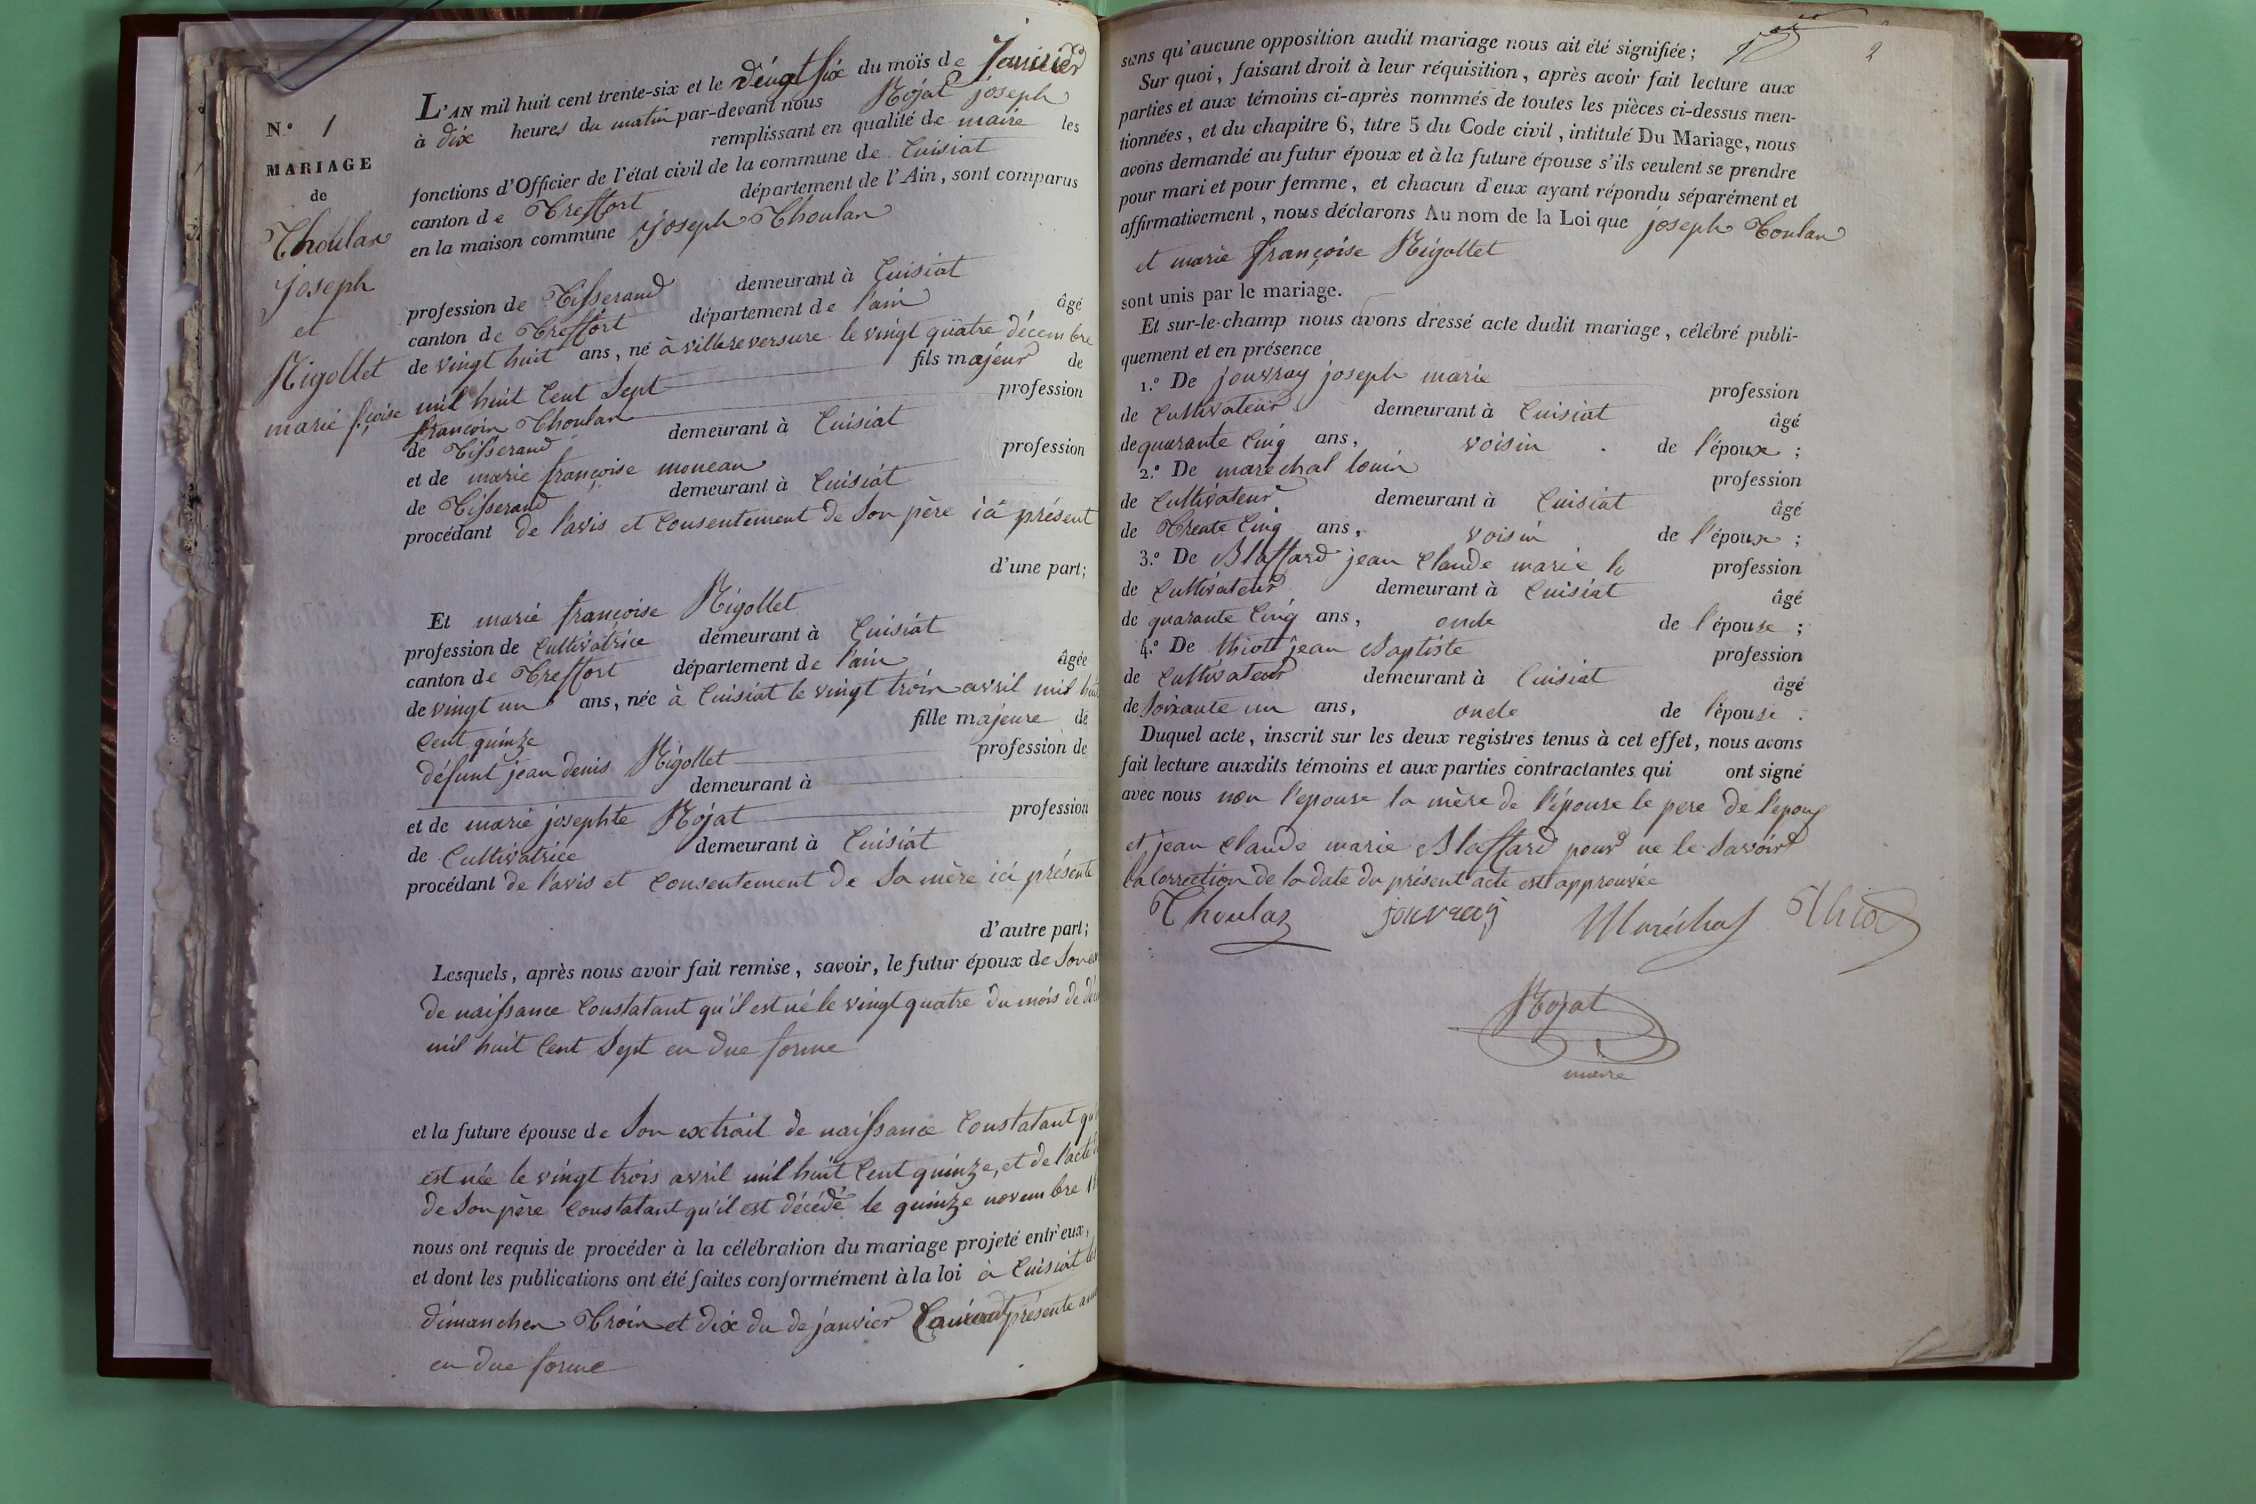 N.° 1
MARIAGE
de
Thoulan
joseph
et
Rigollet
marie f.çoise
L'AN mil huit cent trente-six et le vingt six du mois de Janvier
à dix heures du matin par-devant nous Rojat joseph
remplissant en qualité de maire les
fonctions d'Officier de l'état civil de la commune de Cuisiat
canton de Treffort département de l'Ain, sont comparus
en la maison commune joseph Thoulan
profession de Tisserand demeurant à Cuisiat
canton de Treffort département de l'ain âgé
de vingt huit ans, né à villereversure le vingt quatre décembre
mil huit Cent Sept fils majeur de
francoin Thoulan profession
de Tisserand demeurant à Cuisiat
et de marie françoise moneau profession
de Tisserand demeurant à Cuisiat
procédant de l'avis et Consentement de Son père ici présent
d'une part;
Et marie françoise Rigollet
profession de Cultivatrice demeurant à Cuisiat
canton de Treffort département de l'ain âgée
de vingt un ans, née à Cuisiat le vingt troin avril mil huit
Cent quinze fille majeure de
défunt jean denis Rigollet profession de
demeurant à
et de marie josephte Rojat profession
de Cultivatrice demeurant à Cuisiat
procédant de l'avis et Consentement de Sa mère ici présente
d'autre part;
Lesquels, après nous avoir fait remise, savoir, le futur époux de Son
de naissance Constatant qu'il est né le vingt quatre du mois de
mil huit Cent Sept en due forme
et la future épouse de Son extrait de naissance Constatant
est née le vingt trois avril mil huit Cent quinze, et de l'acte
de Son père Constatant qu'il est décédé le quinze novembre
nous ont requis de procéder à la célébration du mariage projeté entr'eux,
et dont les publications ont été faites conformément à la loi à Cuisiat les
dimanchen Troin et dix du de janvier présente
en due forme
2
sans qu'aucune opposition audit mariage nous ait été signifiée;
Sur quoi, faisant droit à leur réquisition, après avoir fait lecture aux
parties et aux témoins ci-après nommés de toutes les pièces ci-dessus men-
tionnées, et du chapitre 6, titre 5 du Code civil, intitulé Du Mariage, nous
avons demandé au futur époux et à la future épouse s'ils veulent se prendre
pour mari et pour femme, et chacun d'eux ayant répondu séparément et
affirmativement, nous déclarons Au nom de la Loi que joseph Toulan
et marie françoise Rigollet
sont unis par le mariage.
Et sur-le-champ nous avons dressé acte dudit mariage, célébré publi-
quement et en présence
1.° De jouvray joseph marie profession
de Cultivateur demeurant à Cuisiat âgé
de quarante Cinq ans, voisin de l'époux ;
2.° De maréchal louin profession
de Cultivateur demeurant à Cuisiat âgé
de Trente Cinq ans, voisin de l'époux ;
3.° De Blaffard jean Claude marie profession
de Cultivateur demeurant à Cuisiat âgé
de quarante Cinq ans, oncle de l'épouse ;
4.° De thiot jean Baptiste profession
de Cultivateur demeurant à Cuisiat âgé
de Soixante un ans, oncle de l'épouse .
Duquel acte, inscrit sur les deux registres tenus à cet effet, nous avons
fait lecture auxdits témoins et aux parties contractantes qui ont signé
avec nous non l'epouse la mère de l'épouse le pere de l'epoux
et jean Claude marie Blaffard pour ne le Savoir
la Correction de la date du présent acte est approuvée
Thoulaz jouvray Maréchal Thiot
Rojat
maire